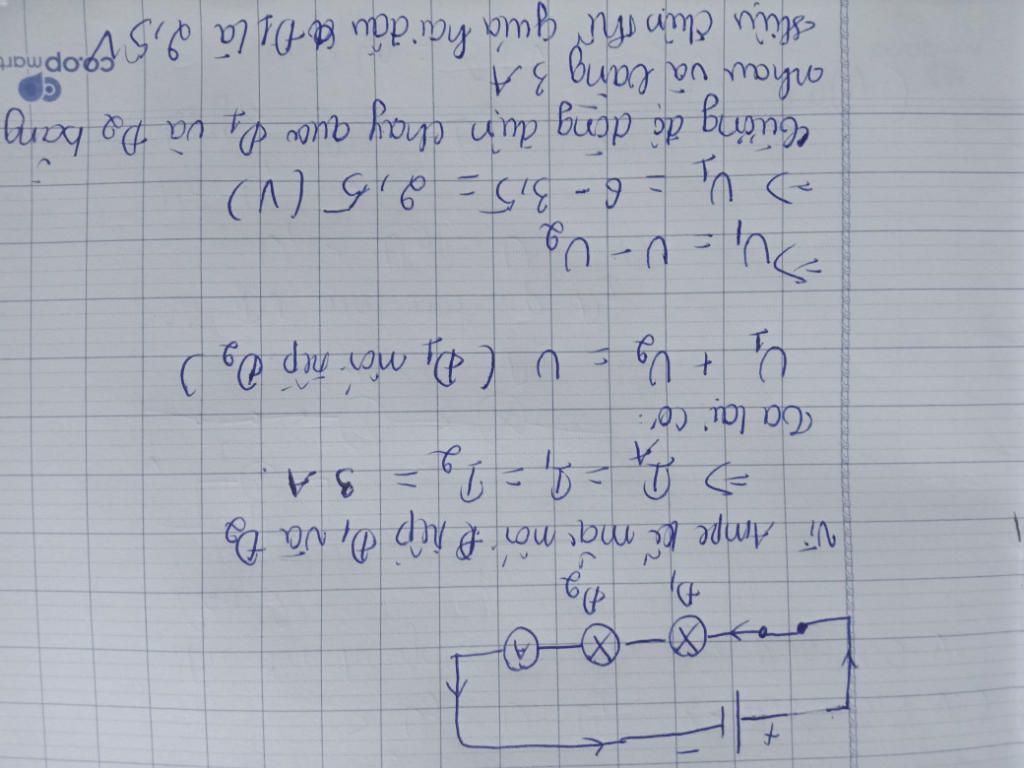 + -
Đ₁ Đ₂ A
Vì Ampe kế mắc nối tiếp Đ₁ và Đ₂
=> I_A = I₁ = I₂ = 3 A.
Ta lại có:
U₁ + U₂ = U (Đ₁ nối tiếp Đ₂)
=> U₁ = U - U₂
=> U₁ = 6 - 3,5 = 2,5 (V)
Cường độ dòng điện chạy qua Đ₁ và Đ₂ bằng
nhau và bằng 3 A
Hiệu điện thế giữa hai đầu Đ₁ là 2,5 V
co.opmart